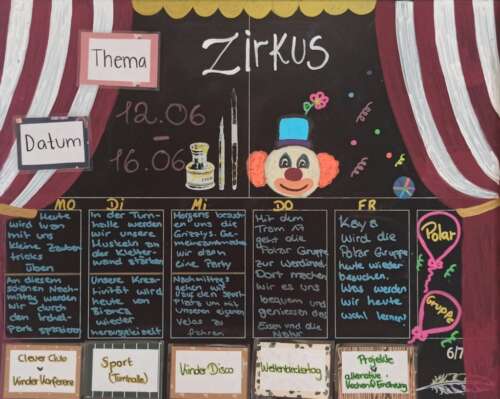 Zirkus
Thema
12.06
-
16.06
Datum
MO
DI
MI
DO
FR
Heute
wird Ivan
mit uns
kleine Zauber
tricks
üben
In der Turn-
halle werden
wir unsere
Muskeln an
der Kletter-
wand stärken
Morgens besuch-
en uns die
Grizzlys. Ge-
meinsam machen
wir dann
eine Party
Mit dem
Tram 11
geht die
Polar Gruppe
zur Werdinsel.
Dort machen
wir es uns
bequem und
geniessen das
Essen und die
Natur
Kay's
wird die
Polar Gruppe
heute wieder
besuchen.
Was werden
wir heute
wohl lernen?
An diesem
schönen Nach-
mittag werden
wir durch
den Irchel-
Park spazieren
Unsere Krea-
tivität wird
heute von
Bianca
wieder
herausgekitzelt
Nachmittags
gehen wir
auf den Sport-
platz um mit
unseren eigenen
Velos zu
fahren
Polar
Gruppe
6/7
Clever Club
Kinder Konferenz
Sport
(Turnhalle)
Kinder Disco
Weltentdeckertag
Projekte
alternative
Kochen & Ernährung